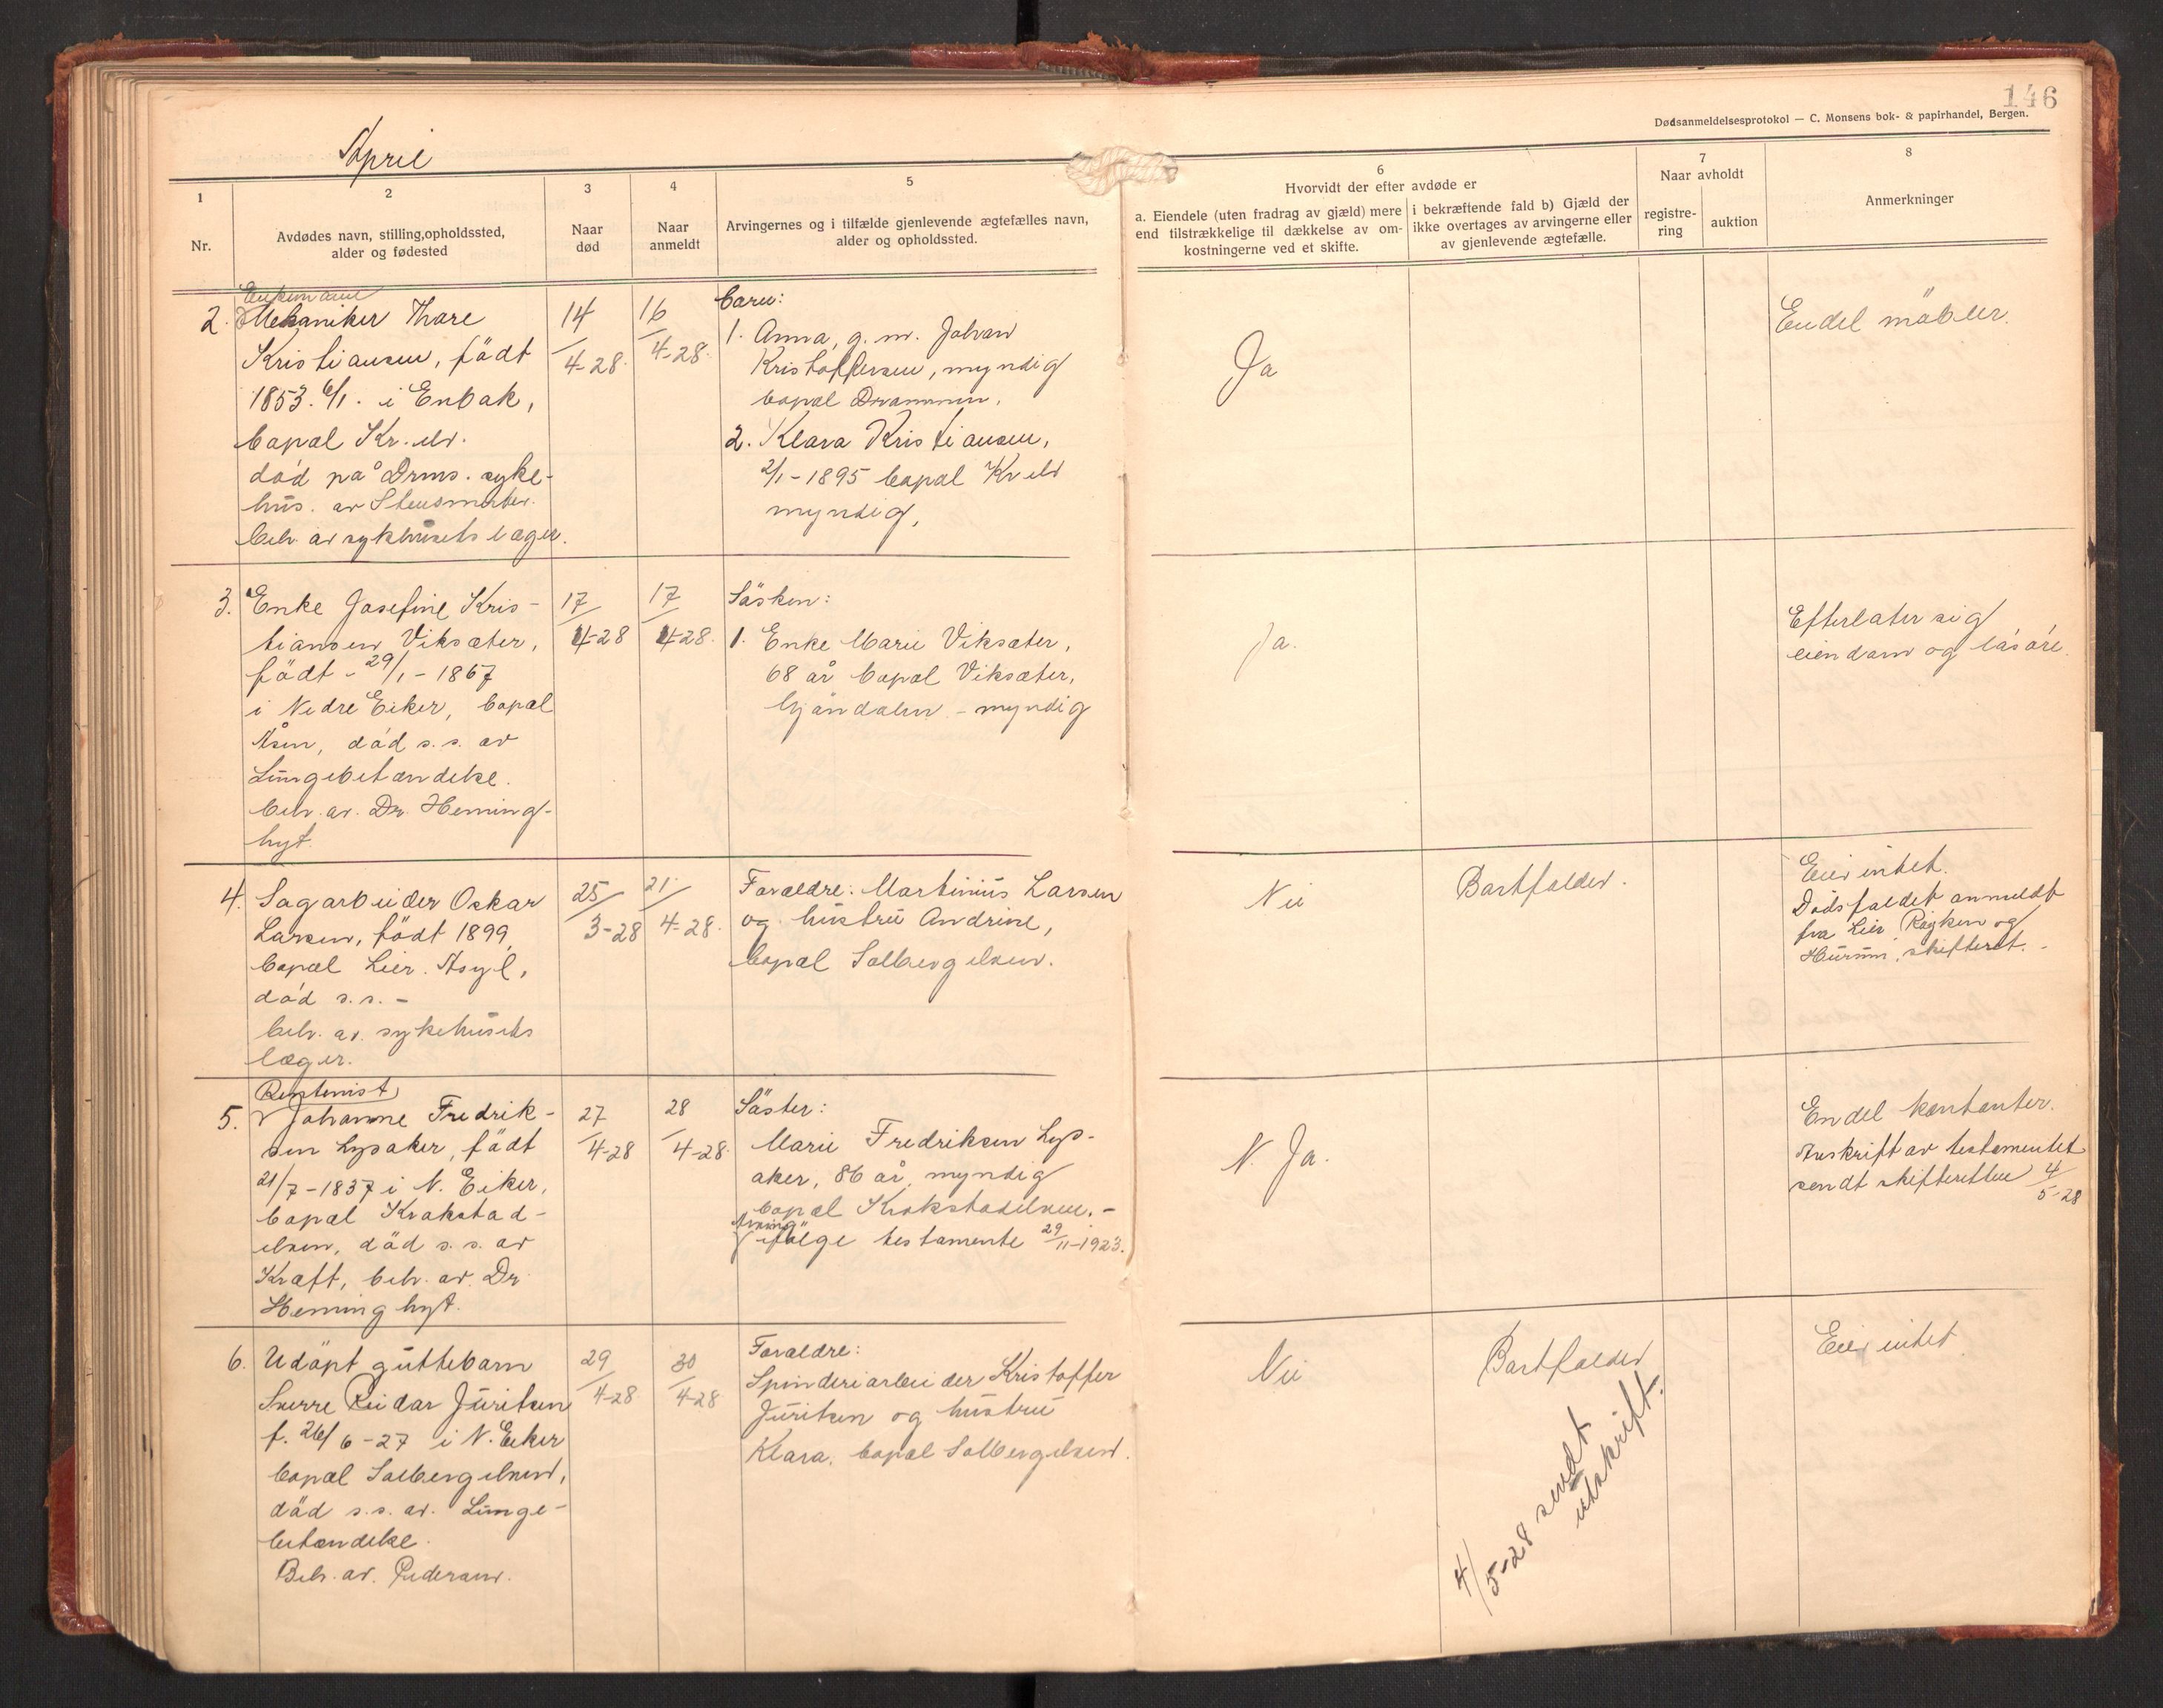 146
Dødsanmeldelsesprotokol — C. Monsens bok- & papirhandel, Bergen.
April
1
Nr.
2
Avdødes navn, stilling, opholdssted,
alder og fødested
3
Naar
død
4
Naar
anmeldt
5
Arvingernes og i tilfælde gjenlevende ægtefælles navn,
alder og opholdssted.
6
Hvorvidt der efter avdøde er
a. Eiendele (uten fradrag av gjæld) mere
end tilstrækkelige til dækkelse av om-
kostningerne ved et skifte.
i bekræftende fald b) Gjæld der
ikke overtages av arvingerne eller
av gjenlevende ægtefælle.
7
Naar avholdt
registre-
ring
auktion
8
Anmerkninger
2.
Enkemand
Mekaniker Thore
Kristiansen, født
1853. 6/1. i Enbak,
bopæl Kr. elv.
død på Drms. syke-
hus. av
beh av sykhusets læger.
14/4-28.
16/4-28.
Barn:
1. Anna, g. m. Johan
Kristoffersen, myndig
bopæl Drammen.
2. Klara Kristiansen,
2/1-1895 bopæl Kr elv
myndig.
Ja
Endel møbler.
3.
Enke Josefine Kris-
tiansen Viksæter,
født - 29/1 - 1867
i Nedre Eiker, bopæl
Åsen, død s. s. av
Lungebetændelse.
beh. av. Dr. Heming-
hyt.
17/4-28
17/4-28.
Søsken:
1. Enke Marie Viksæter,
68 år bopæl Viksæter,
Mjøndalen - myndig
Ja.
Efterlater sig
eiendom og løsøre.
4.
Sagarbeider Oskar
Larsen, født 1899
bopæl Lier. Asyl,
død s. s. -
beh. av. sykehusets
læger.
25/3-28
21/4-28.
Forældre: Martinius Larsen
og hustru Andrine,
bopæl Solbergelven.
Nei
Bortfalder.
Eier intet.
Dødsfaldet anmeldt
fra Lier, Røyken og
Hurum, skifteret. -
5.
Johanne Fredrik-
sen Lysaker, født
21/7-1837 i N. Eiker,
bopæl Krokstad-
elven, død s. s. av
Kræft, beh. av. Dr
Heming hyt.
27/4-28
28/4-28.
Søster:
Marie Fredriksen Lys-
aker, 86 år, myndig
bopæl Krokstadelven. -
ifølge testamente 29/11-1923.
N. Ja.
Endel kontanter.
Avskrift av testamentet
sendt skifteretten 4/5-28
6.
Udøpt guttebarn
Sverre Reidar Juriksen
f. 26/6-27 i N. Eiker
bopæl Solbergelven,
død s. s. av. Lunge-
betændelse.
Beh. av. Pedersen.
29/4-28
30/4-28
Forældre:
Spinderiarbeider Kristoffer
Juriksen og hustru
Klara, bopæl Solbergelven.
Nei
Bortfalder
Eier intet.
4/5-28 sendt
utskrift.